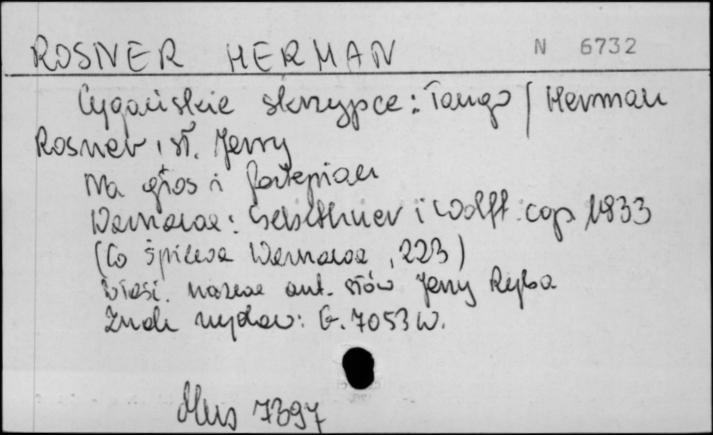 ROSNER HERMAN N 6732
Cygańskie skrzypce : Tango / Herman
Rosner , sł. Jerry
Na głos i fortepian
Warszawa : Gebethner i Wolff cop 1933
(Co Śpiewa Warszawa , 223)
Właśc. nazwa aut. słów Jerry Ryba
Znak wydaw: G. 7053 W.
Mus 7397